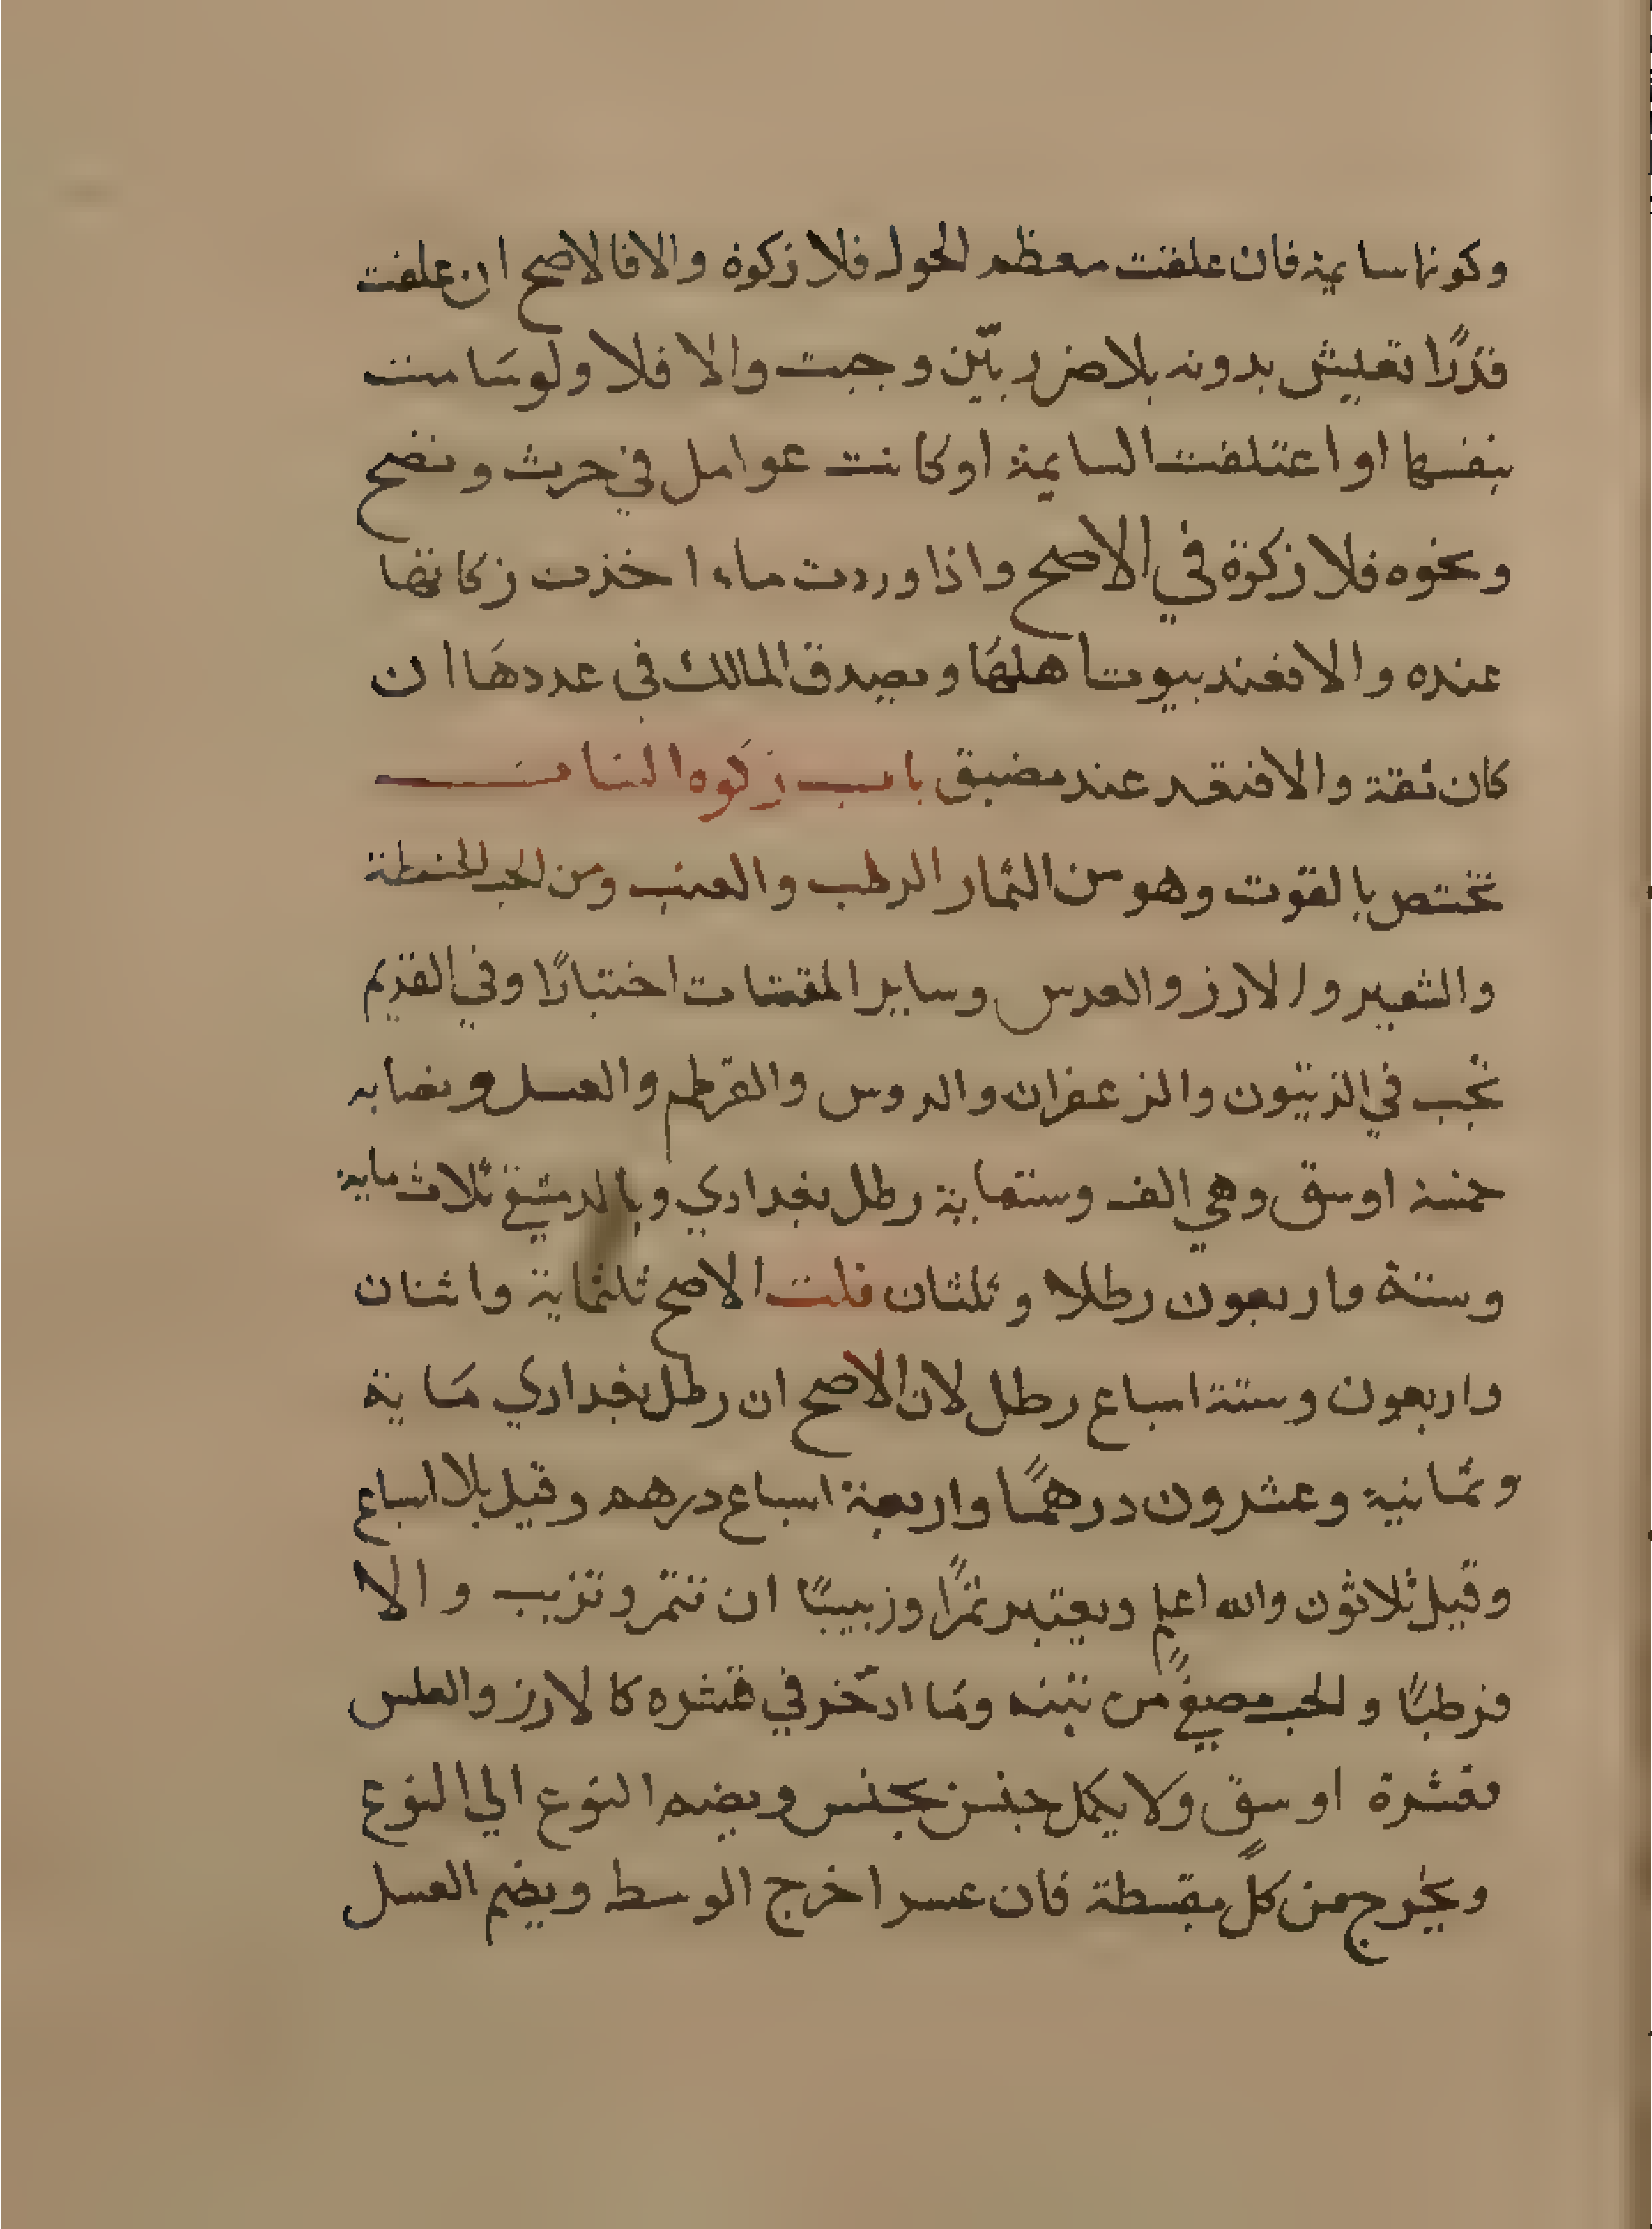 وكونها سايمة فان علفت معظم الحول فلا زكوة والا فالاصح ان علفت
قدرًا تعيش بدونه بلا ضرر بيّن وجبت والا فلا ولو سَامت
بنفسها او اعتلفت السايمة او كانت عوامل في حرث ونضح
ونحوه فلا زكوة في الاصح واذا وردت ماء اخذت زكاتها
عنده والا فعند بيوت اهلهَا ويصدق المالك في عددهَا ان
كان ثقة والا فتعد عند مضيق باب زكوه النبات
تختص بالقوت وهو من الثمار الرطب والعنب ومن الحب الحنطة
والشعير والارز والعدس وساير المقتات اختيارًا وفي القديم
تجب في الزيتون والزعفران والورس والقرطم والعسل ونصابه
خمسة اوسق وهي الف وستماية رطل بغدادي وبالدمشقي ثلاث ماية
وستة واربعون رطلا وثلثان قلت الاصح ثلثماية واثنان
واربعون وستة اسباع رطل لان الاصح ان رطل بغدادي مَاية
وثمانية وعشرون درهمًا واربعة اسباع درهم وقيل بلا اسباع
وقيل ثلاثون والله اعلم ويعتبر تمرًا وزبيبًا ان تتمر وتزبب والا
فرطبًا والحب مصفيً من تبنه ومَا ادّخر في قشره كالارز والعلس
فعشرة اوسق ولا يكمل جنس بجنس ويضم النوع الي النوع
ويخرج من كلٍّ بقسطة فان عسر اخرج الوسط ويضم العسل